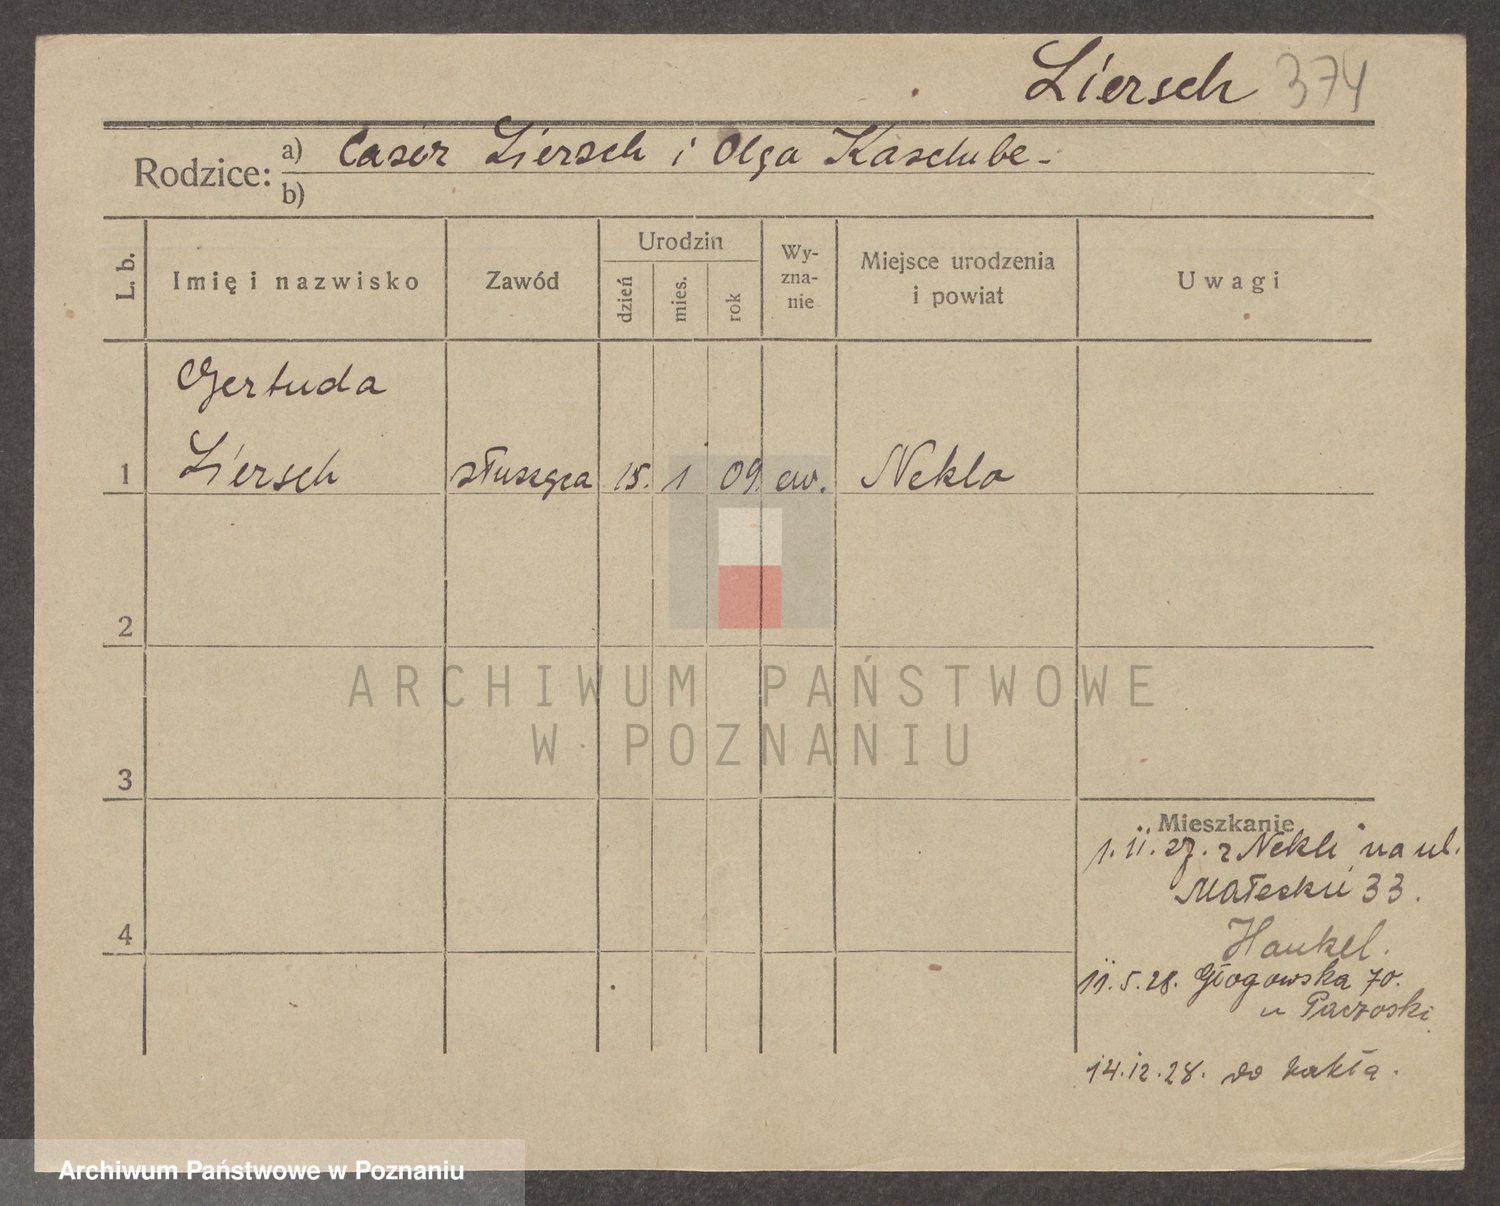 Liersch 374
Rodzice: a) Casér Liersch i Olga Kaschube -
b)
L. b.
Imię i nazwisko
Zawód
Urodzin
dzień
mies.
rok
Wy-
zna-
nie
Miejsce urodzenia
i powiat
Uwagi
Gertuda
1 Liersch służąca 15. 1 09. ew. Nekla
2
ARCHIWUM PAŃSTWOWE
W POZNANIU
3
Mieszkanie
1. 11. 27. z Nekli na ul.
33.
Haukel.
11. 5. 28. Głogowska 70.
u Paczoski
4
14. 12. 28. do
Archiwum Państwowe w Poznaniu